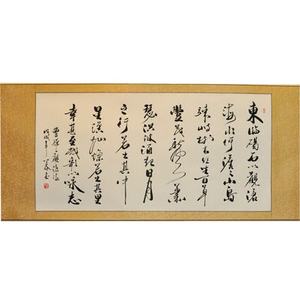 東臨碣石以觀滄
海水何澹澹山島
竦峙樹木叢生百草
豐茂秋風蕭
瑟洪波涌起日月
之行若出其中
星漢燦爛若出其里
幸甚至哉歌以咏志
曹操觀滄海